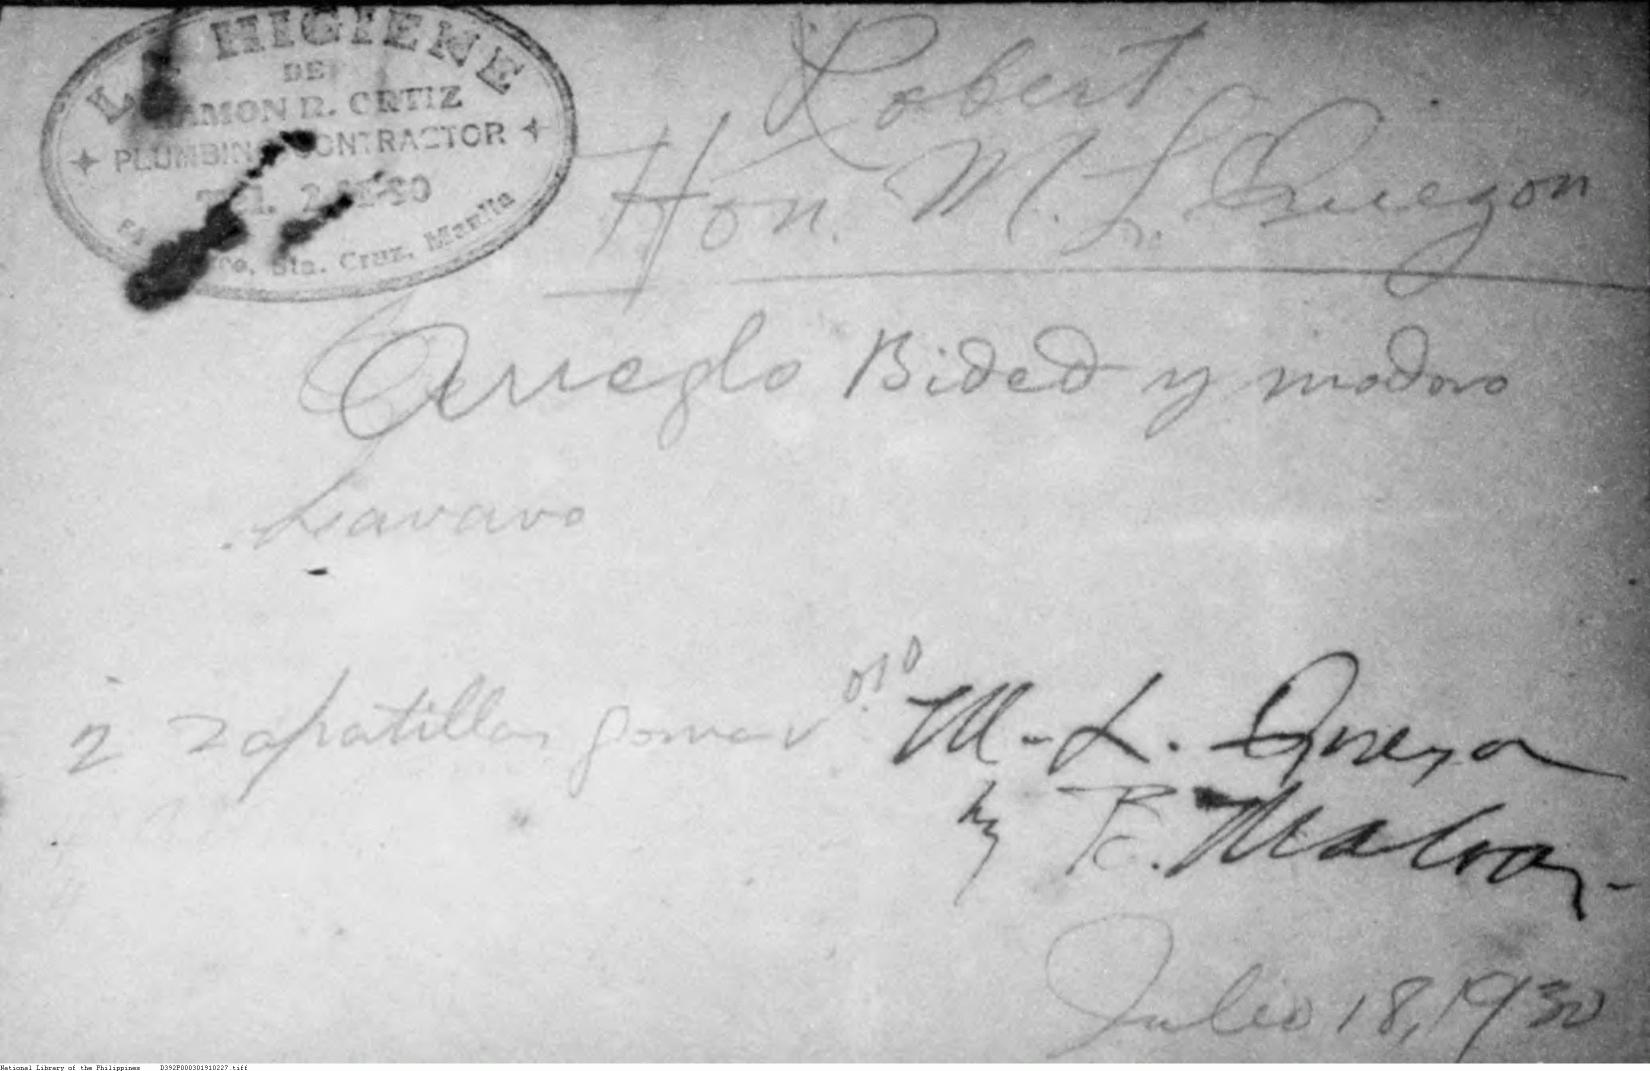 LA HIGIENE
DE
RAMON R. ORTIZ
PLUMBING CONTRACTOR
TEL.
Sta. Cruz, Manila
Robert
Hon. M. L. Quezon
Arreglo Bided y inodoro
Lavavo
2 zapatillas goma
M. L. Quezon
by R. Malvar
Julio 18, 1930
National Library of the Philippines D392P000301910227.tiff